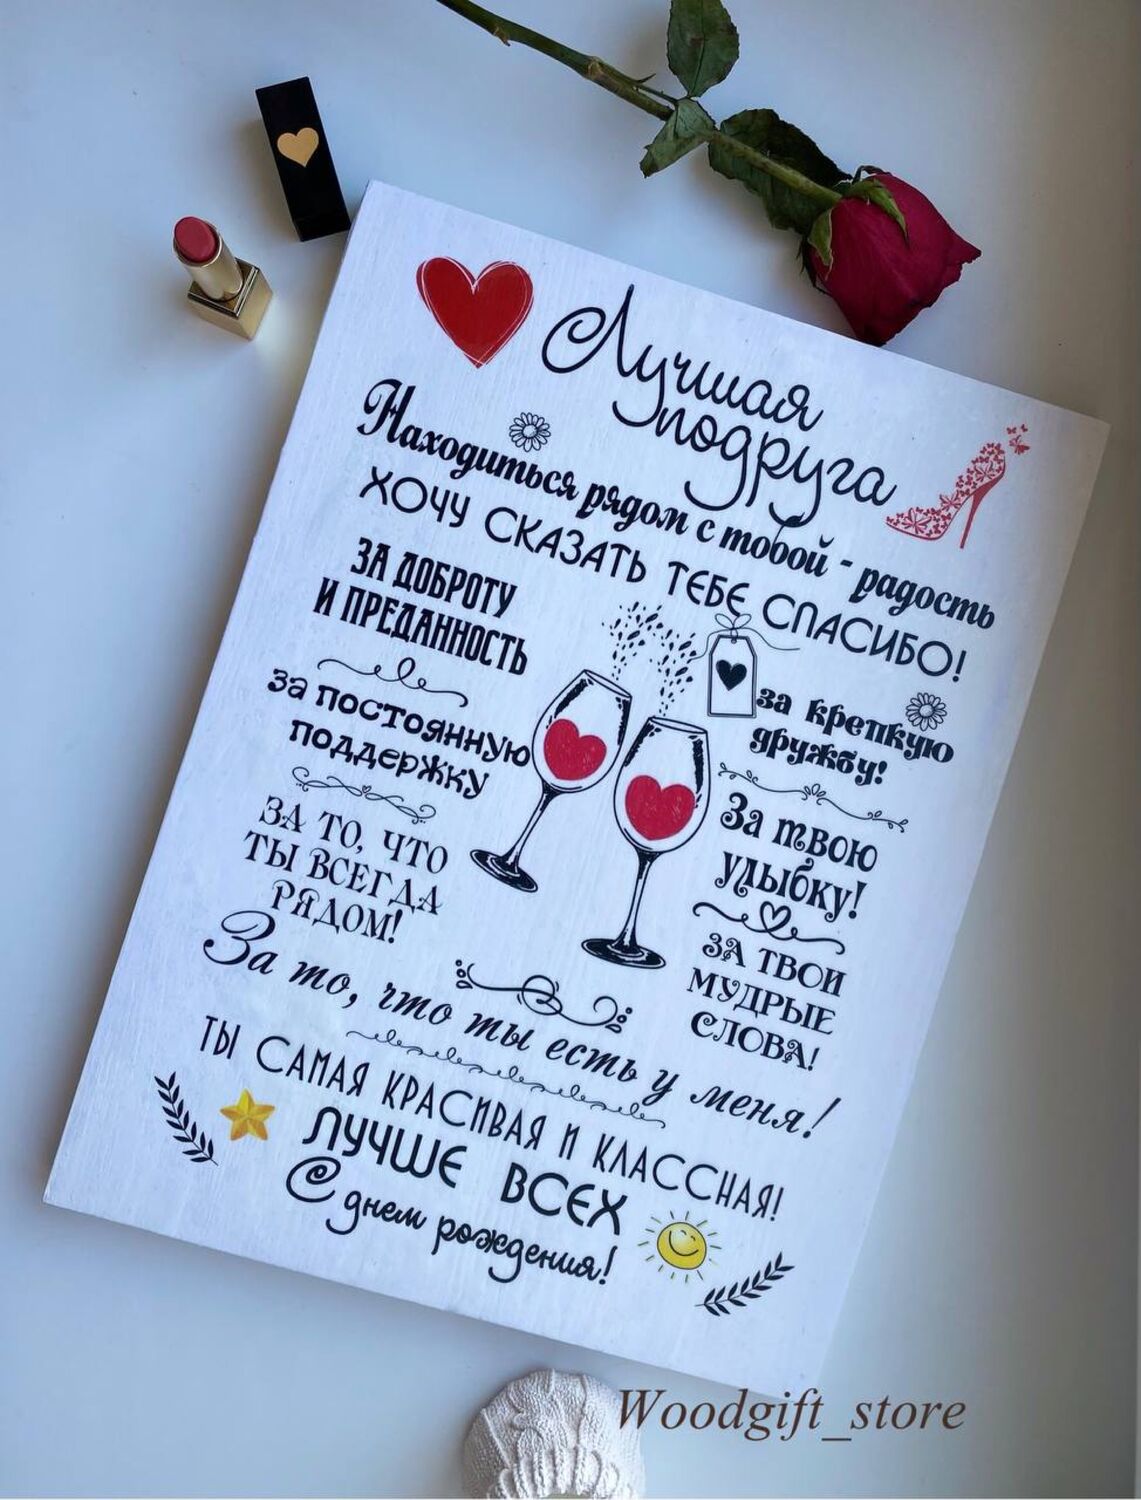 Лучшая
подруга
Находиться рядом с тобой - радость
ХОЧУ СКАЗАТЬ ТЕБЕ СПАСИБО!
ЗА ДОБРОТУ
И ПРЕДАННОСТЬ
за постоянную
поддержку
ЗА ТО, ЧТО
ТЫ ВСЕГДА
РЯДОМ!
за крепкую
дружбу!
За твою
улыбку!
ЗА ТВОИ
МУДРЫЕ
СЛОВА!
За то, что ты есть у меня!
ТЫ САМАЯ КРАСИВАЯ И КЛАССНАЯ!
ЛУЧШЕ ВСЕХ
С днем рождения!
Woodgift_store